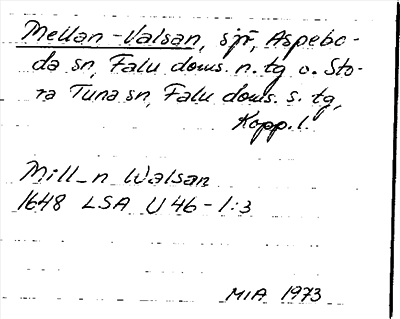 Mellan-Valsan, sjö, Aspebo-
da sn, Falu doms. n. tg o. Sto-
ra Tuna sn, Falu doms. s. tg,
Kopp. l.
Mill_n Walsan
1648 LSA U 46 - 1:3
MIA 1973